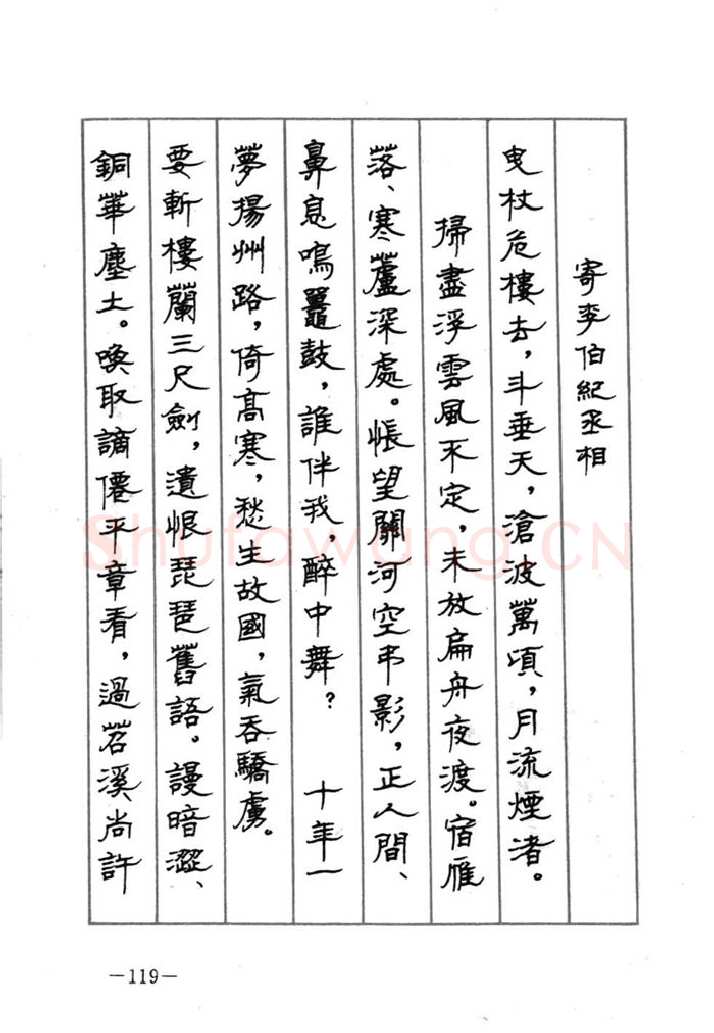 寄李伯紀丞相
曳杖危樓去，斗垂天，滄波萬頃，月流煙渚。
掃盡浮雲風不定，未放扁舟夜渡。宿雁
落、寒蘆深處。悵望關河空弔影，正人間、
鼻息鳴鼉鼓，誰伴我，醉中舞？　十年一
夢揚州路，倚高寒，愁生故國，氣吞驕虜。
要斬樓蘭三尺劍，遺恨琵琶舊語。謾暗澀、
銅華塵土。喚取謫僊平章看，過苕溪尚許
Shufawang.CN
—119—